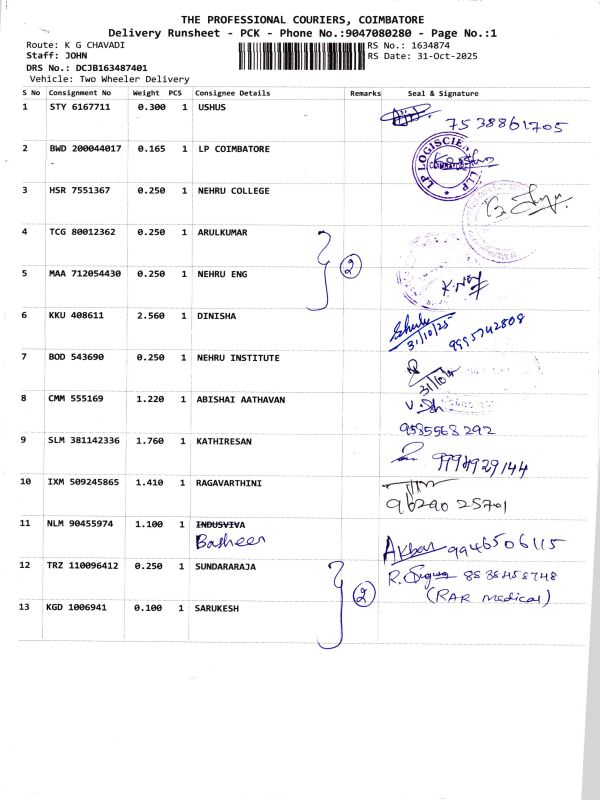 THE PROFESSIONAL COURIERS, COIMBATORE
Delivery Runsheet - PCK - Phone No.:9047080280 - Page No.:1
Route: K G CHAVADI RS No.: 1634874
Staff: JOHN RS Date: 31-Oct-2025
DRS No.: DCJB163487401
Vehicle: Two Wheeler Delivery
S No Consignment No Weight PCS Consignee Details Remarks Seal & Signature
1 STY 6167711 0.300 1 USHUS
7538861705
2 BWD 200044017 0.165 1 LP COIMBATORE
-
LP LOGISCIEN LLP
COIMBATORE
3 HSR 7551367 0.250 1 NEHRU COLLEGE
4 TCG 80012362 0.250 1 ARULKUMAR
2
5 MAA 712054430 0.250 1 NEHRU ENG
6 KKU 408611 2.560 1 DINISHA
31/10/25 9995742808
7 BOD 543690 0.250 1 NEHRU INSTITUTE
31/10/
8 CMM 555169 1.220 1 ABISHAI AATHAVAN
9585568292
9 SLM 381142336 1.760 1 KATHIRESAN
9994929144
10 IXM 509245865 1.410 1 RAGAVARTHINI
96290 25701
11 NLM 90455974 1.100 1 INDUSVIVA
Basheer
Akbar 9946506115
12 TRZ 110096412 0.250 1 SUNDARARAJA
R. 8838458748
(RAR medical)
2
13 KGD 1006941 0.100 1 SARUKESH